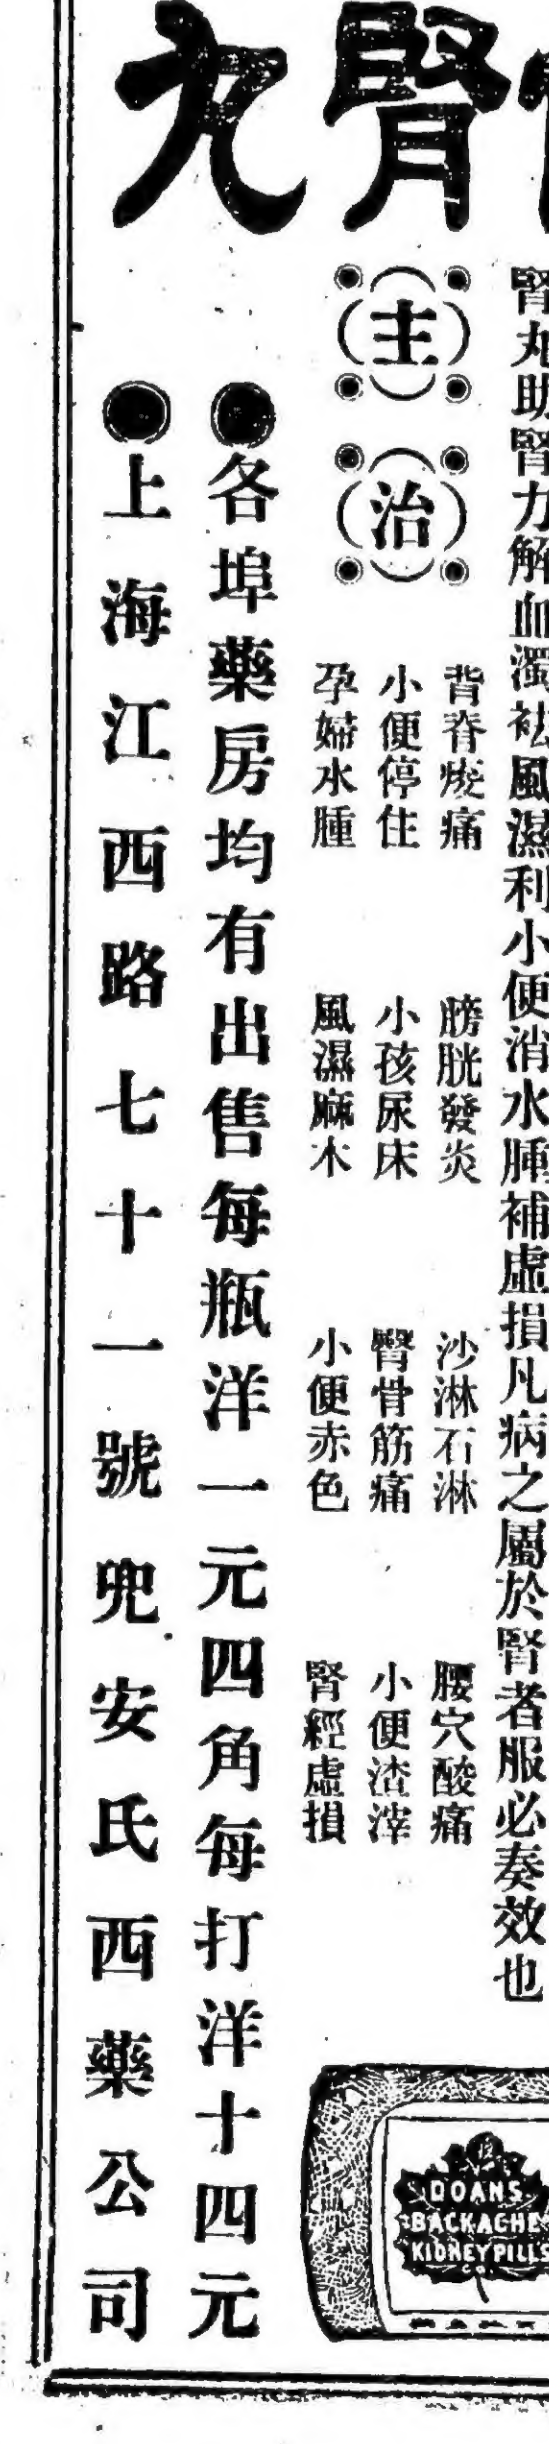 腎丸
腎丸助腎力解血濁袪風濕利小便消水腫補虛損凡病之屬於腎者服必奏效也
主治
背脊痠痛 膀胱發炎 沙淋石淋 腰穴酸痛
小便停住 小孩尿床 臀骨筋痛 小便渣滓
孕婦水腫 風濕麻木 小便赤色 腎經虛損
●各埠藥房均有出售每瓶洋一元四角每打洋十四元
●上海江西路七十一號兜安氏西藥公司
DOANS
BACKACHE
KIDNEY PILLS